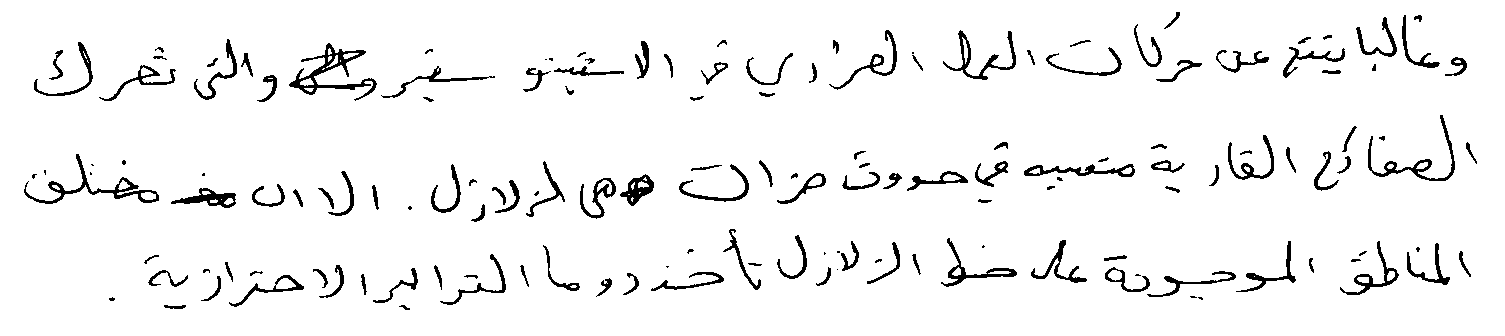 وغالبا ينتج عن حركات الحمل الحراري في الاستينو سفير والتي تحرك
الصفائح القارية متسببه في حدوث هزات هي الزلازل. الا ان مختلف
المناطق الموجودة على خط الزلازل تأخذ دوما التدابير الاحترازية.